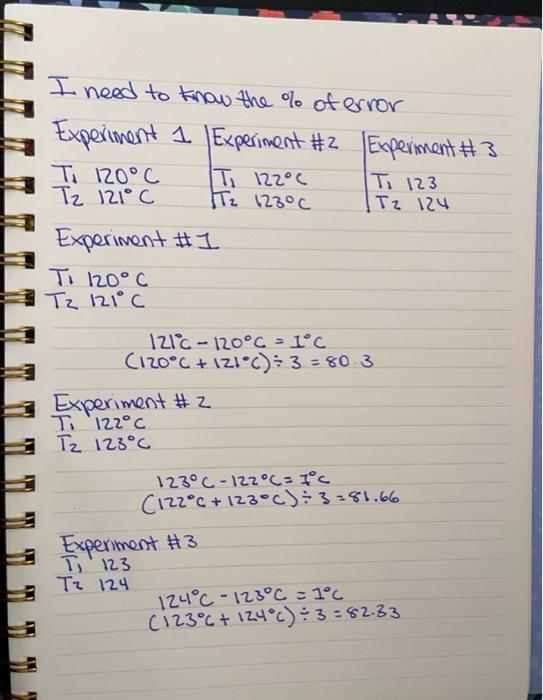 I need to know the % of error
Experiment 1 Experiment #2 Experiment #3
T1 120°C T1 122°C T1 123
T2 121°C T2 123°C T2 124
Experiment #1
T1 120°C
T2 121°C
121°C - 120°C = 1°C
(120°C + 121°C) ÷ 3 = 80.3
Experiment #2
T1 122°C
T2 123°C
123°C - 122°C = 1°C
(122°C + 123°C) ÷ 3 = 81.66
Experiment #3
T1 123
T2 124
124°C - 123°C = 1°C
(123°C + 124°C) ÷ 3 = 82.33